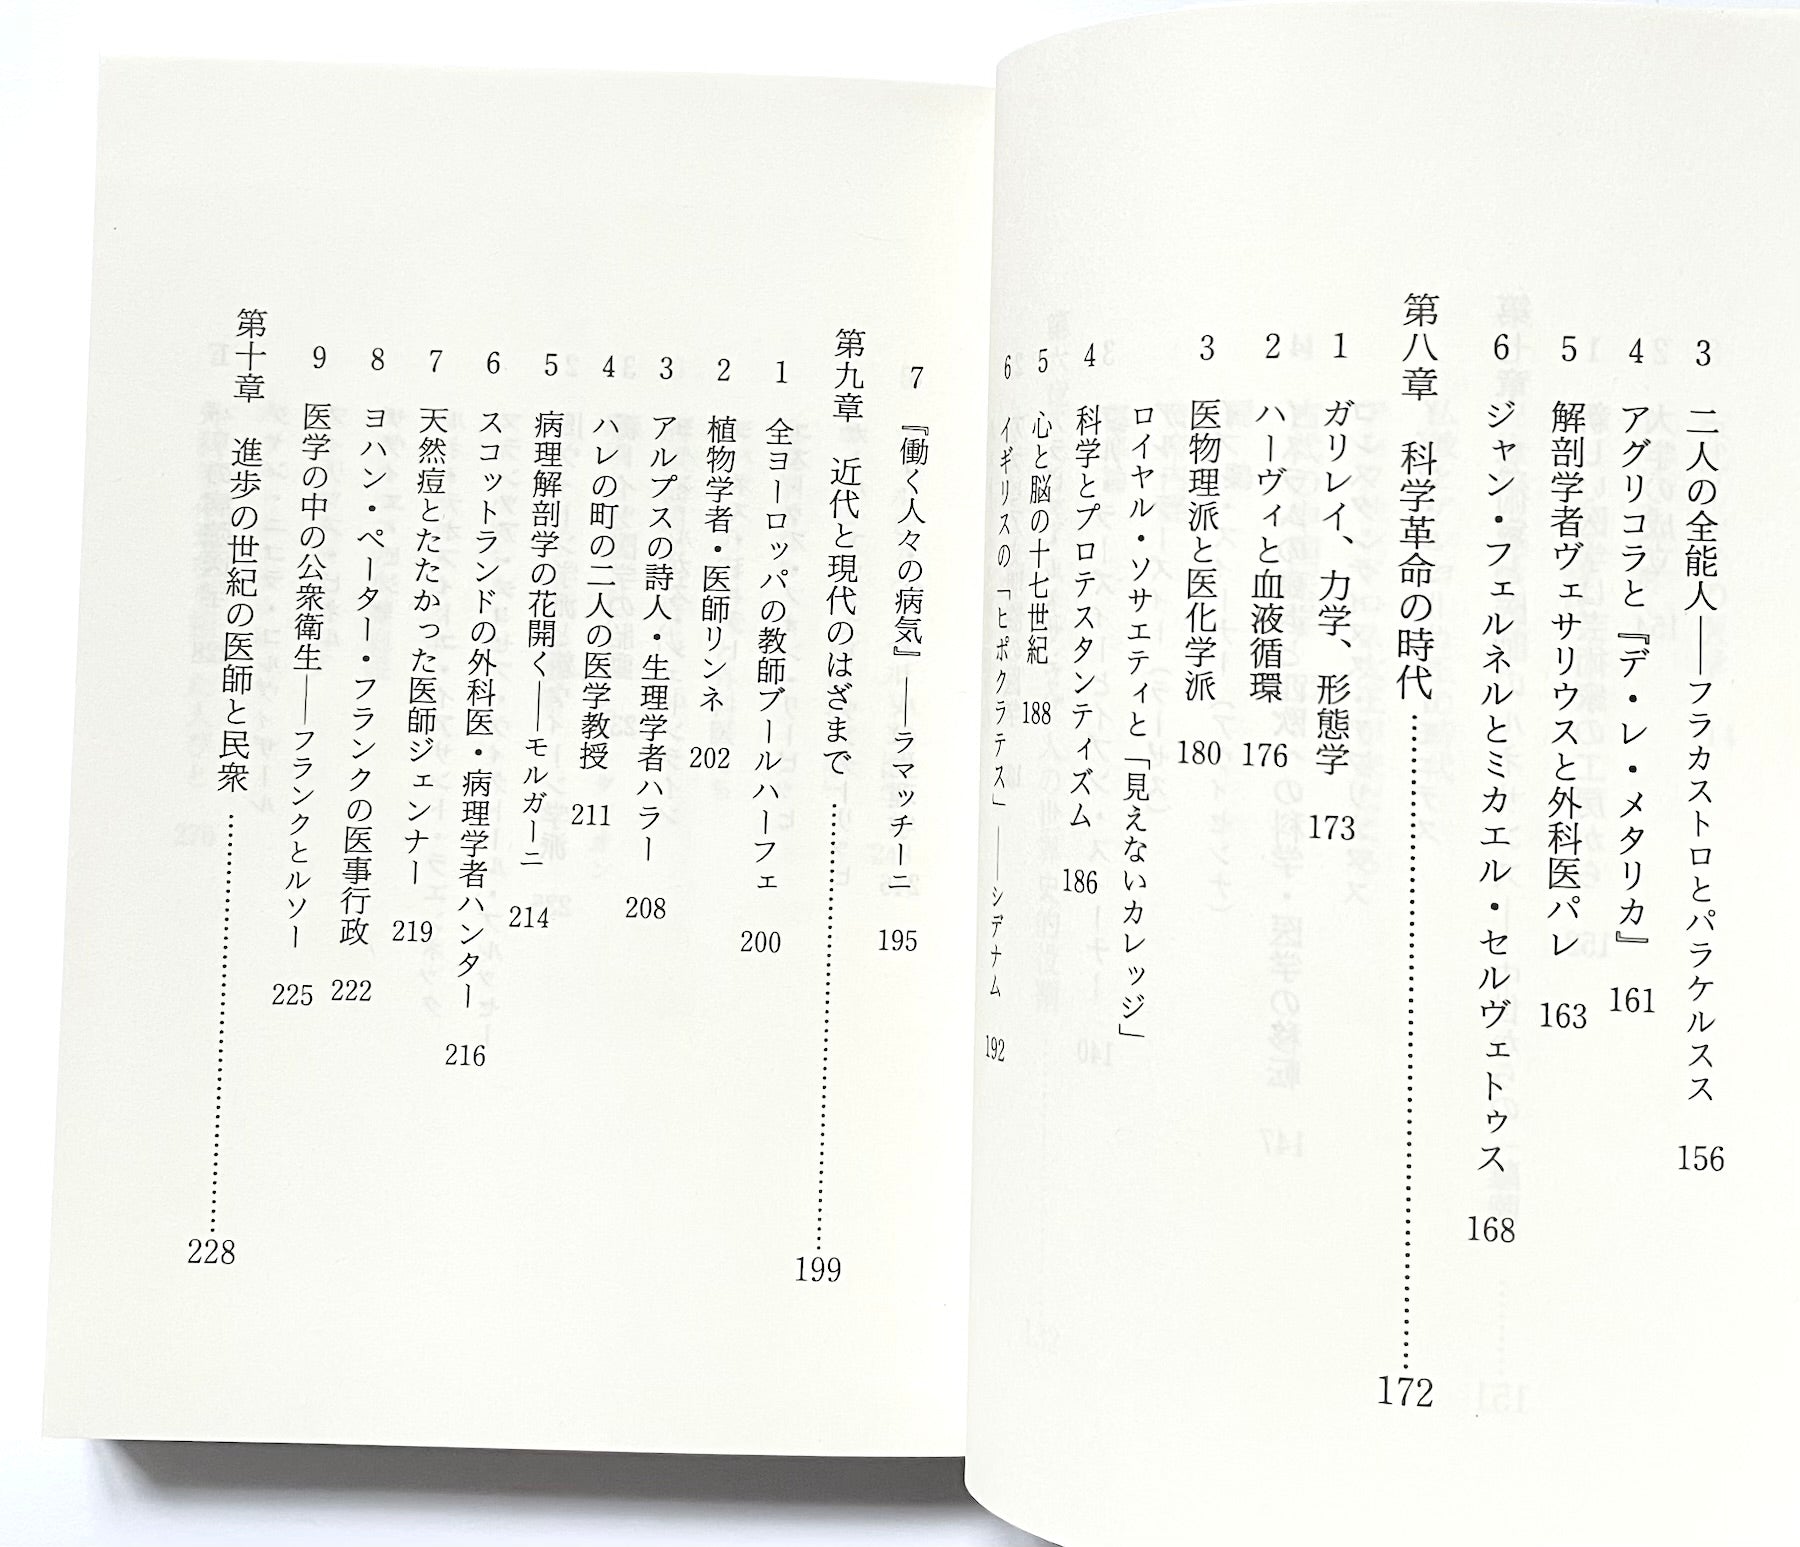 3 二人の全能人——フラカストロとパラケルスス 156
4 アグリコラと『デ・レ・メタリカ』 161
5 解剖学者ヴェサリウスと外科医パレ 163
6 ジャン・フェルネルとミカエル・セルヴェトゥス 168
第八章 科学革命の時代……172
1 ガリレイ、力学、形態学 173
2 ハーヴィと血液循環 176
3 医物理派と医化学派 180
ロイヤル・ソサエティと「見えないカレッジ」
4 科学とプロテスタンティズム 186
5 心と脳の十七世紀 188
6 イギリスの「ヒポクラテス」——シデナム 192
7 『働く人々の病気』——ラマッチーニ 195
第九章 近代と現代のはざまで……199
1 全ヨーロッパの教師ブールハーフェ 200
2 植物学者・医師リンネ 202
3 アルプスの詩人・生理学者ハラー 208
4 ハレの町の二人の医学教授 211
5 病理解剖学の花開く——モルガーニ 214
6 スコットランドの外科医・病理学者ハンター 216
7 天然痘とたたかった医師ジェンナー 219
8 ヨハン・ペーター・フランクの医事行政 222
9 医学の中の公衆衛生——フランクとルソー 225
第十章 進歩の世紀の医師と民衆……228